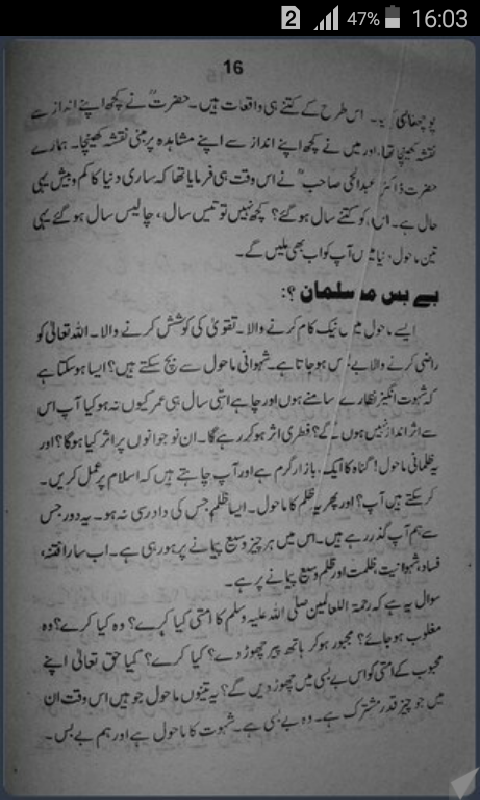 2 47% 16:03
16
اس طرح کے کتنے ہی واقعات ہیں۔ حضرتؒ نے کچھ اپنے انداز سے
نقشہ کھینچا تھا، اور میں نے کچھ اپنے انداز سے اپنے مشاہدہ پر مبنی نقشہ کھینچا۔ ہمارے
حضرت ڈاکٹر عبدالحئی صاحبؒ نے اس وقت ہی فرمایا تھا کہ ساری دنیا کا کم و بیش یہی
حال ہے۔ اس کو کتنے سال ہو گئے؟ کچھ نہیں تو تیس سال، چالیس سال ہو گئے یہی
تین ماحول دنیا میں آپ کو اب بھی ملیں گے۔
بے بس مسلمان ؟:
ایسے ماحول میں نیک کام کرنے والا۔ تقویٰ کی کوشش کرنے والا۔ اللہ تعالیٰ کو
راضی کرنے والا بے بس ہو جاتا ہے۔ شہوانی ماحول سے بچ سکتے ہیں؟ ایسا ہو سکتا ہے
کہ شہوت انگیز نظارے سامنے ہوں اور چاہے اسّی سال ہی عمر کیوں نہ ہو کیا آپ اس
سے اثر انداز نہیں ہوں گے؟ فطری اثر ہو کر رہے گا۔ ان نوجوانوں پر اثر کیا ہوگا؟ اور
یہ ظلماتی ماحول! گناہ کا ایک بازار گرم ہے اور آپ چاہتے ہیں کہ اسلام پر عمل کریں۔
کر سکتے ہیں آپ؟ اور پھر یہ ظلم کا ماحول۔ ایسا ظلم جس کی دادرسی نہ ہو۔ یہ دور جس
سے ہم آپ گذر رہے ہیں۔ اس میں ہر چیز وسیع پیمانے پر ہو رہی ہے۔ اب سارا فتنہ،
فساد، شہوانیت، ظلمت اور ظلم وسیع پیمانے پر ہے۔
سوال یہ ہے کہ رحمۃ اللعالمین صلی اللہ علیہ وسلم کا امتی کیا کرے؟ وہ کیا کرے؟ وہ
مغلوب ہو جائے؟ مجبور ہو کر ہاتھ پیر چھوڑ دے؟ کیا کرے؟ کیا حق تعالیٰ اپنے
محبوب کے امتی کو اس بے بسی میں چھوڑ دیں گے؟ یہ تینوں ماحول جو ہیں اس وقت ان
میں جو چیز قدر مشترک ہے۔ وہ بے بسی ہے۔ شہوت کا ماحول ہے اور ہم بے بس۔